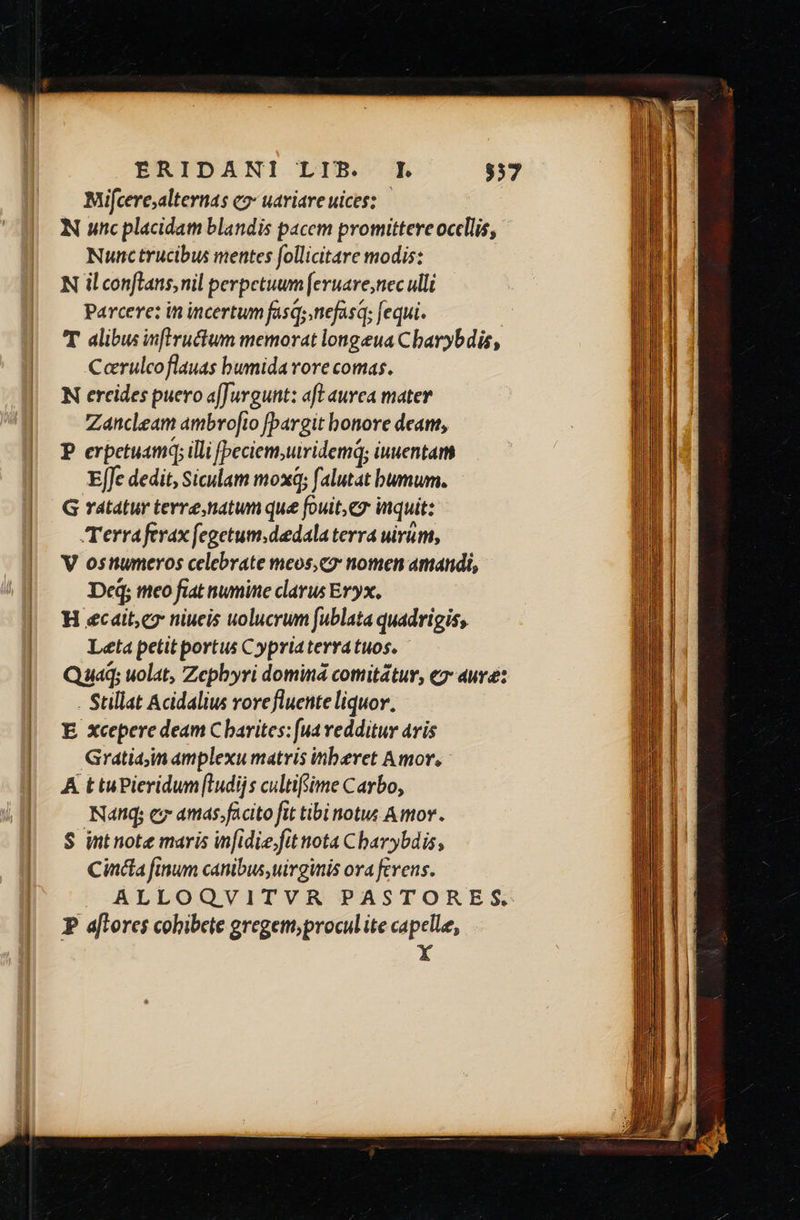 ERIDANI LIB. I. 337
Miſcere,alternas & uariare uices:
N unc placidam blandis pacem promittere ocellis,
Nunc trucibus mentes ſollicitare modis:
N il conſtans,nil perpetuum ſeruare,nec ulli
Parcere: in incertum fasq;,nefasq; ſequi.
T alibus inſtructum memorat longæua Charybdis,
Cœrulco flauas humida rore comas.
N ereides puero aſſurgunt: aſt aurea mater
Zancleam ambroſio ſpargit honore deam,
P erpetuamq; illi ſpeciem,uiridemq; iuuentam
Eſſe dedit, Siculam moxq; ſalutat humum.
G ratatur terræ,natum quæ fouit,& inquit:
Terra ferax ſegetum,dædala terra uirûm,
V os numeros celebrate meos,& nomen amandi,
Deq; meo fiat numine clarus Eryx.
H æc ait,& niueis uolucrum ſublata quadrigis,
Læta petit portus Cypria terra tuos.
Quaq; uolat, Zephyri dominā comitātur, & auræ:
Stillat Acidalius rore fluente liquor.
E xcepere deam Charites: ſua redditur aris
Gratia,in amplexu matris inhæret Amor.
A t tu Pieridum ſtudijs cultiſsime Carbo,
Nanq; & amas,facito ſit tibi notus Amor.
S int notæ maris inſidiæ,ſit nota Charybdis,
Cincta ſinum canibus,uirginis ora ferens.
ALLOQVITVR PASTORES.
P aſtores cohibete gregem,procul ite capellæ,
Y